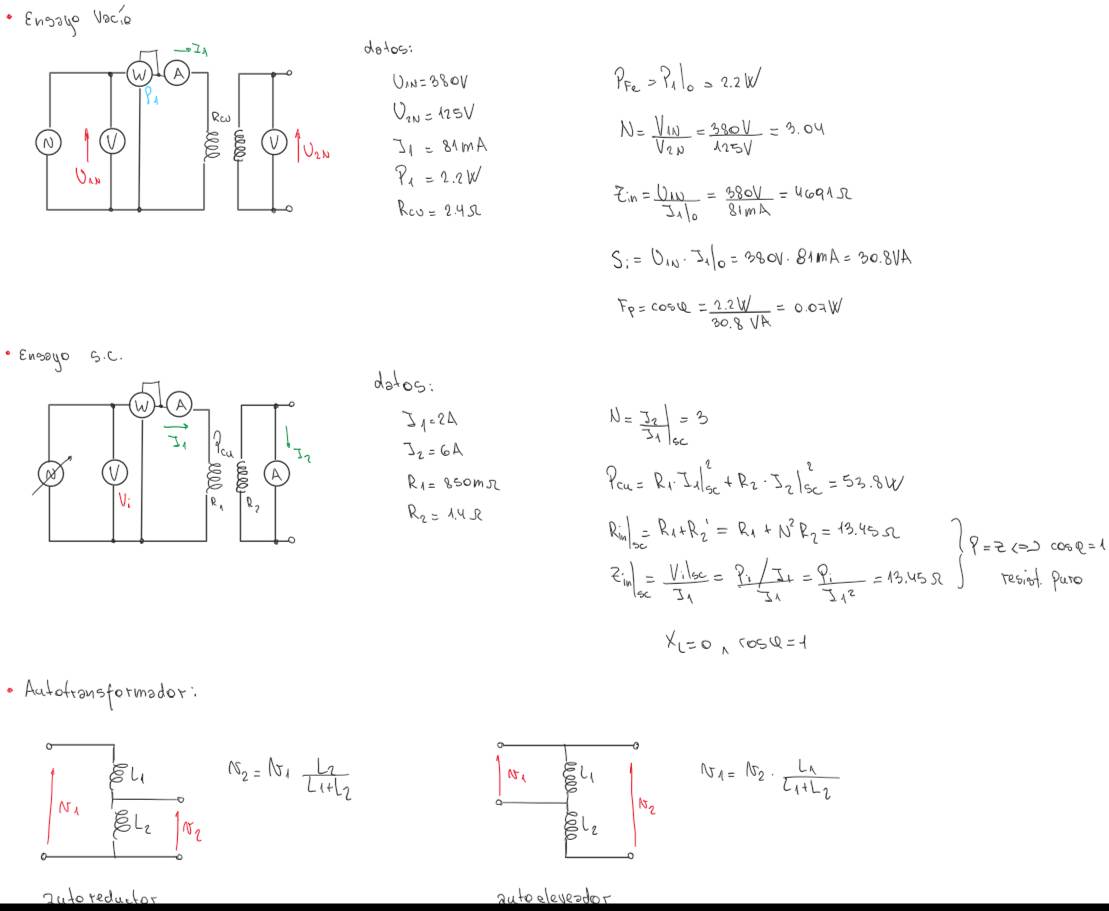 • Ensayo Vacío
W A → I1
P1
N V Rcu V
U1N U2N
datos:
U1N = 380V
U2N = 125V
I1 = 81mA
P1 = 2.2W
Rcu = 2.4Ω
PFe = P1|0 = 2.2W
N = V1N/V2N = 380V/125V = 3.04
Zin = U1N/I1|0 = 380V/81mA = 4691Ω
Si = U1N · I1|0 = 380V · 81mA = 30.8VA
Fp = cosφ = 2.2W/30.8VA = 0.07W
• Ensayo S.C.
W A
I1 Pcu I2
N V R1 R2 A
Vi
datos:
I1 = 2A
I2 = 6A
R1 = 850mΩ
R2 = 1.4Ω
N = I2/I1|sc = 3
Pcu = R1 · I1|²sc + R2 · I2|²sc = 53.8W
Rin|sc = R1 + R2' = R1 + N²R2 = 13.45Ω
Zin|sc = Vi|sc/I1 = Pi/I1/I1 = Pi/I1² = 13.45Ω
} P = Z <=> cosφ = 1
resist. puro
XL = 0 ∧ cosφ = 1
• Autotransformador:
v1 L1 L2 v2
v2 = v1 L2/(L1+L2)
autoreductor
v1 L1 L2 v2
v1 = v2 · L1/(L1+L2)
autoelevador